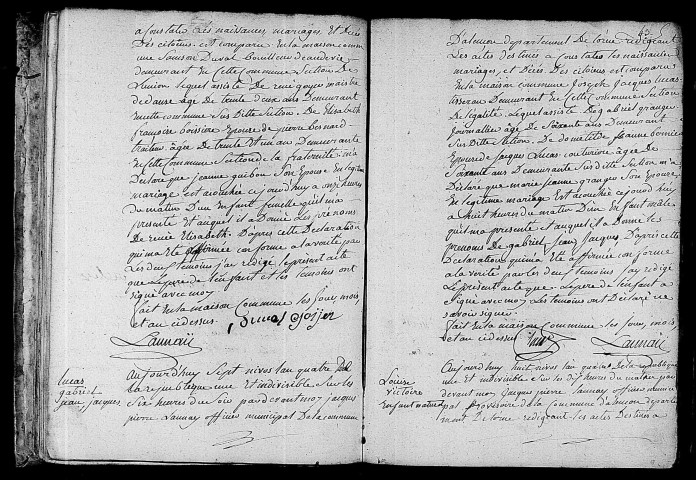 a constater les naissances, mariages, et décès
Des citoiens est comparu En la maison comm
une Samson Duval bouilleur deaudevie
demeurant En Cette Commune Section De
Lunion lequel assisté de rené goyer maistre
de danse agé de trente deux ans Demeurant
Enditte Commune Sus Ditte Section. De Elisabeth
françoise boissiere Epouse de pierre besnard
traiteur agée de trente Et un an Demeurante
En Cette Commune Section de la fraternité m'a
Declaré que jeanne guibon Son Epouse En légitime
mariage est acouchée ejourd'huy a onze heures
du matin D'un Enfant femelle quil m'a
presenté Et auquel il a Donné Les prenoms
De renée Elisabeth. D'apres cette Declaration
qui ma Eté affirmée conforme a la verité par
Les deux temoins j'ay redigé le present acte
que Le pere de l'enfant et les temoins ont
signé avec moy
fait En la maison Commune Les jour, mois,
et an cidessus
Launaÿ
Lucas
gabriel
jean, jacques
Aujourd'huy Sept nivos lan quatre De
La republique une Et indivisible Sur les
Six heures du soir pardevant moy jacques
pierre Launay officier municipal De la commune
D'alencon departement De Lorne redigeant
Les actes destinés a constater les naissances
mariages, et Décès. Des citoiens est comparu
En la maison commune Joseph Jacques Lucas
tisseran Demeurant En Cette Commune Section
De légalité Lequel assisté De gabriel granger
journallier agé de Soixante ans Demeurant
Sus Ditte Section. De jeanne bonnier
Epouse De jacques Lucas couturiere agée De
Soixante ans Demeurante Sus Ditte Section m'a
Declaré que marie jeanne granger Son Epouse
En légitime mariage Est acouchée ejourd'huy
a huit heures du matin D'un Enfant male
quil ma presenté Et auquel il a Donné les
prenoms De gabriel, Jean, Jacques, D'apres cette
Declaration qui ma Eté affirmée conforme
a la verité par les deux temoins jay redigé
Le present acte que Le pere de l'enfant a
Signé avec moy Les temoins ont Declaré ne
savoir signer.
fait En la maison commune les jour, mois,
et an cidessus
Launaÿ
Louise
victoire
Enfant naturel
Aujourd'huy huit nivos lan quatre De la republique
une Et indivisible Sur les Dix heures du matin par
devant moy jacques pierre Launay officier munici
pal provisoire de la Commune d'alencon departe
ment De Lorne redigeant les actes Destinés a